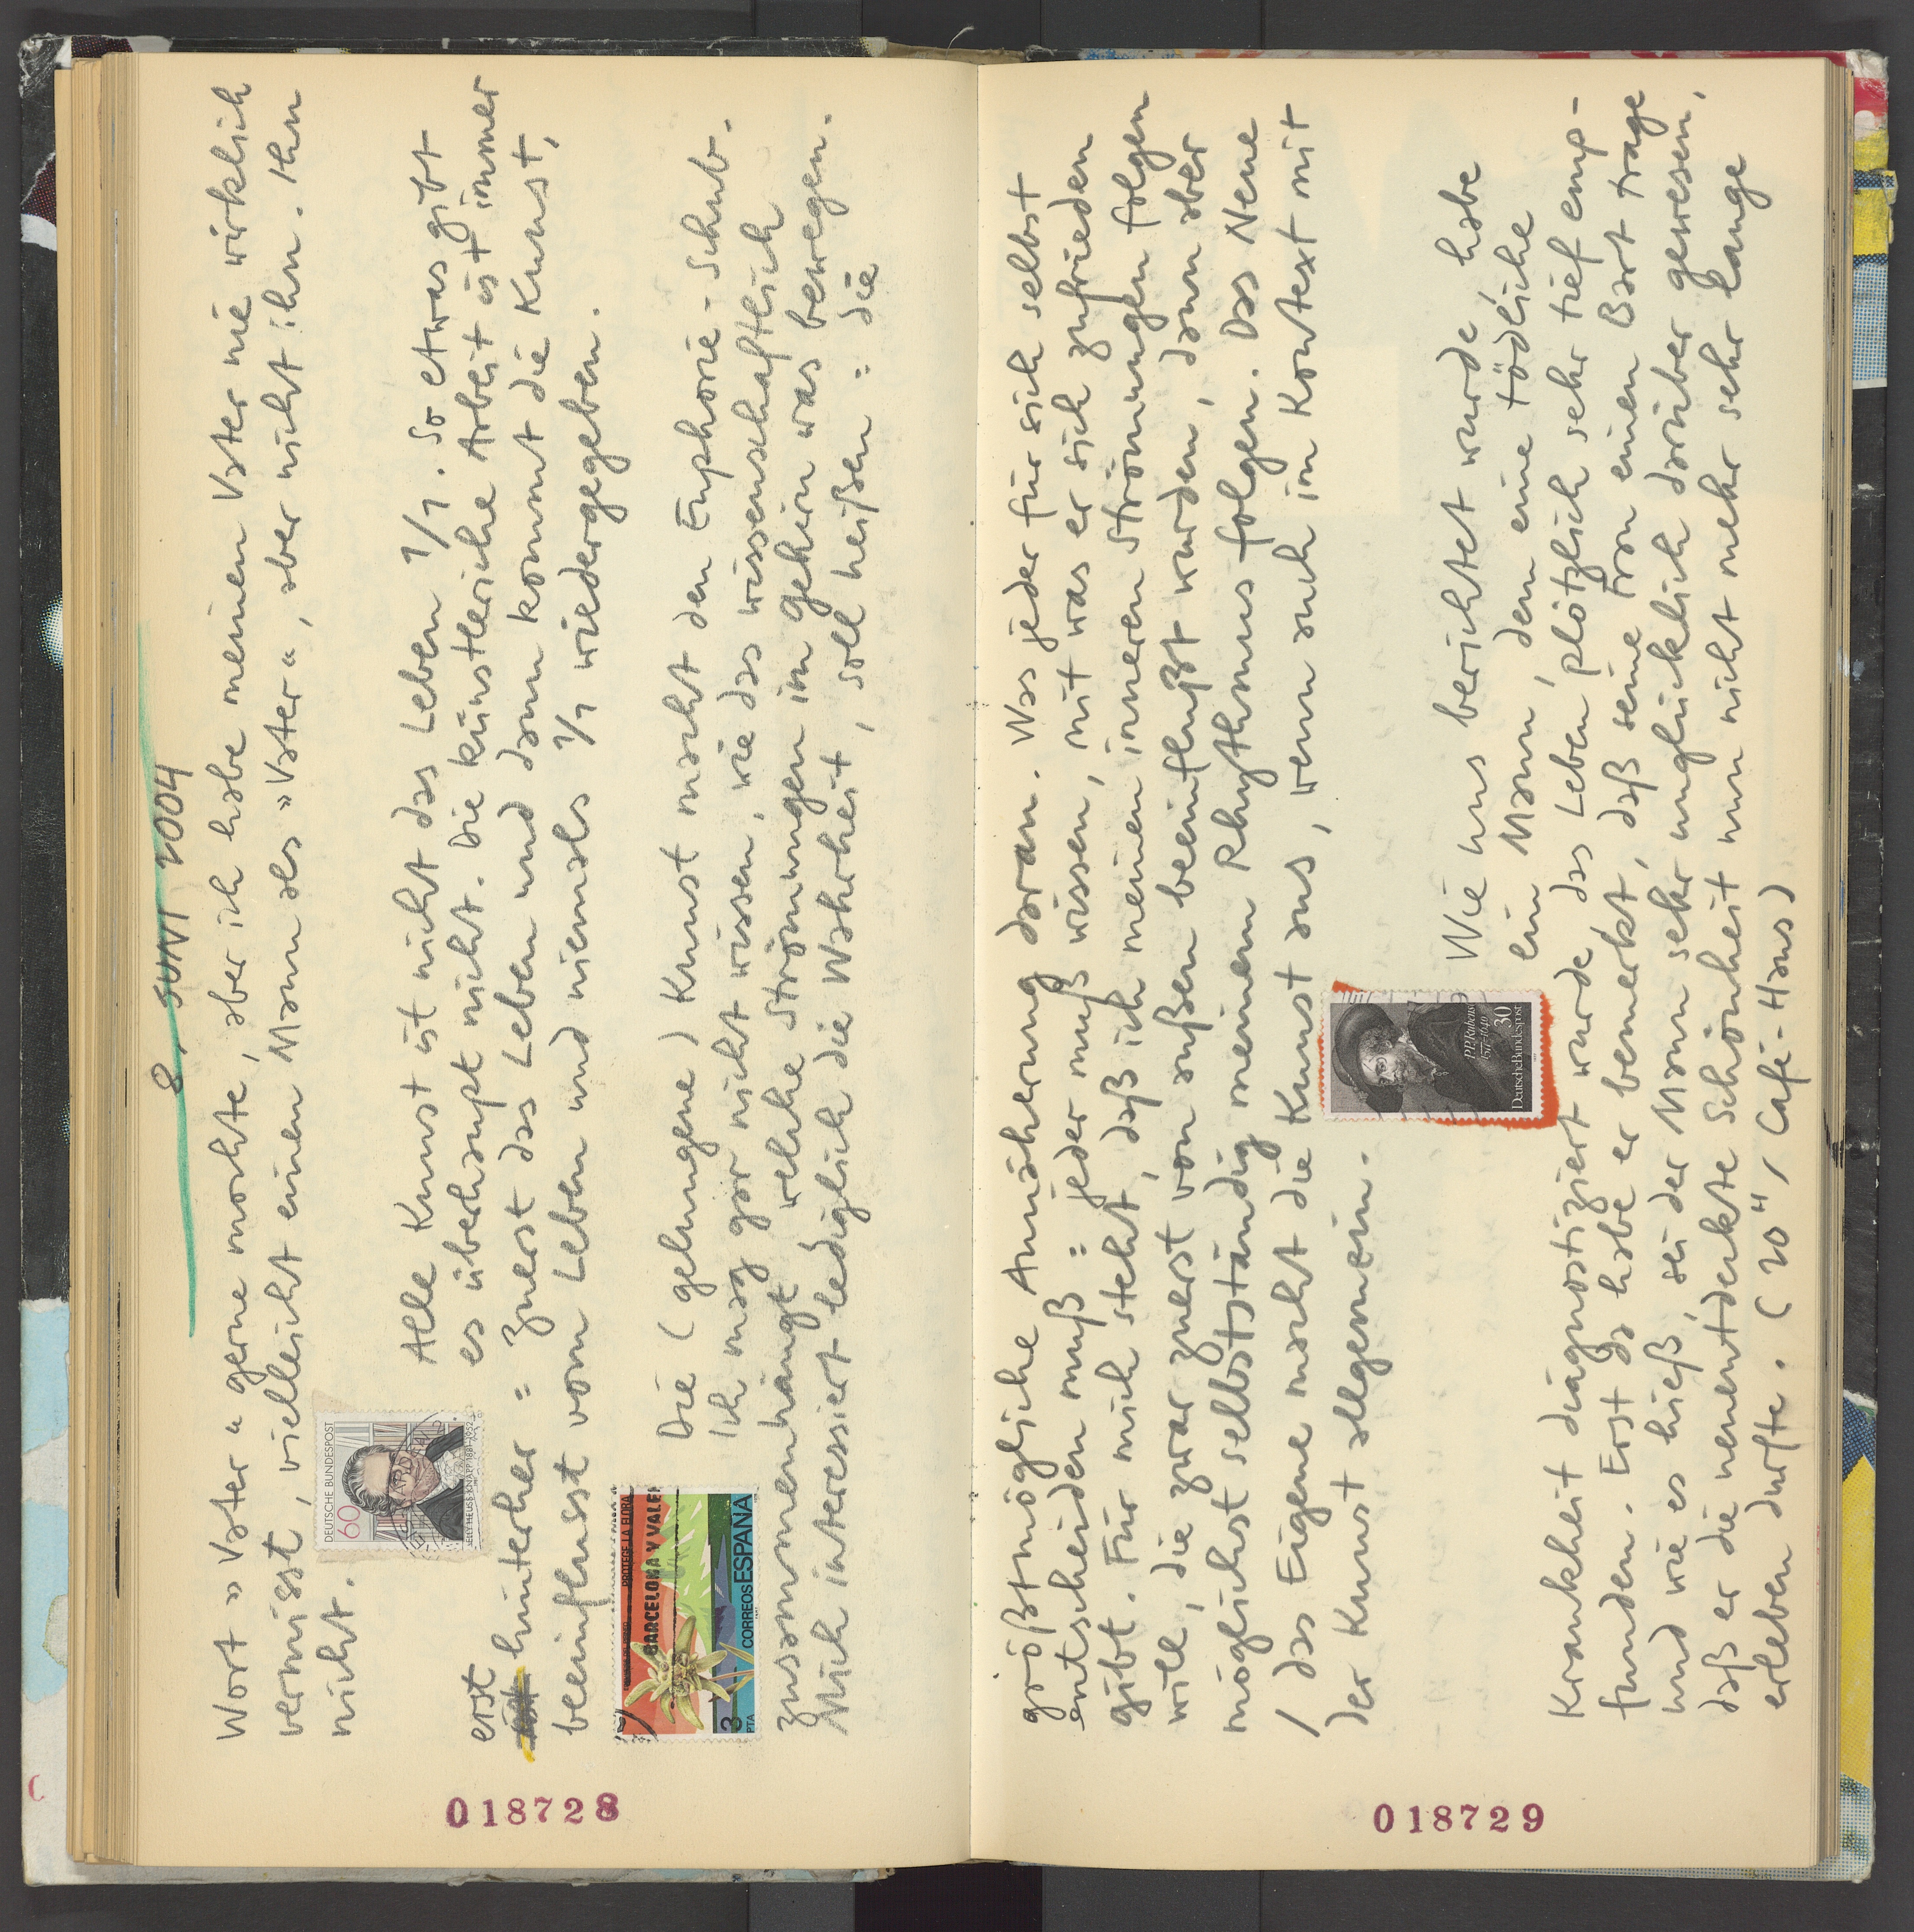 8. JUNI 2004
Wort » Vater « gerne mochte, aber ich habe meinen Vater nie wirklich
vermißt, vielleicht einen Mann als » Vater «, aber nicht ihn. Ihn
nicht.
DEUTSCHE BUNDESPOST
60
ELLY HEUSS-KNAPP 1881-1952
Alle Kunst ist nicht das Leben 1/1. So etwas gibt
es überhaupt nicht. Die künstleriche Arbeit ist immer
erst
hinterher = zuerst das Leben und dann kommt die Kunst,
beeinflusst vom Leben und niemals 1/1 wiedergegeben.
PROTEGE LA FLORA
BARCELONA Y VALEN
3 PTA
CORREOS ESPAÑA
Die (gelungene) Kunst macht den Euphorie-Schub.
Ich mag gar nicht wissen, wie das wissenschaftlich
zusammenhängt welche Strömungen im gehirn was bewegen.
Mich interessiert lediglich die Wahrheit, soll heißen = die
018728
größtmögliche Annäherung daran. Was jeder für sich selbst
entscheiden muß = jeder muß wissen, mit was er sich zufrieden
gibt. Für mich steht, daß ich meinen inneren Strömungen folgen
will, die zwar zuerst von außen beeinflußt wurden, dann aber
möglichst selbstständig meinem Rhythmus folgen. Das Neue
/ das Eigene macht die Kunst aus, wenn auch im Kontext mit
der Kunst allgemein.
P.P. Rubens
1577-1640
30
Deutsche Bundespost
Wie uns berichtet wurde, habe
ein Mann, dem eine tödliche
Krankheit diagnostiziert wurde, das Leben plötzlich sehr tief emp-
funden. Erst da habe er bemerkt, daß seine Frau einen Bart trage
und wie es hieß, sei der Mann sehr unglücklich darüber gewesen,
daß er die neuentdeckte Schönheit nun nicht mehr sehr lange
erleben durfte. (20" / Café-Haus)
018729